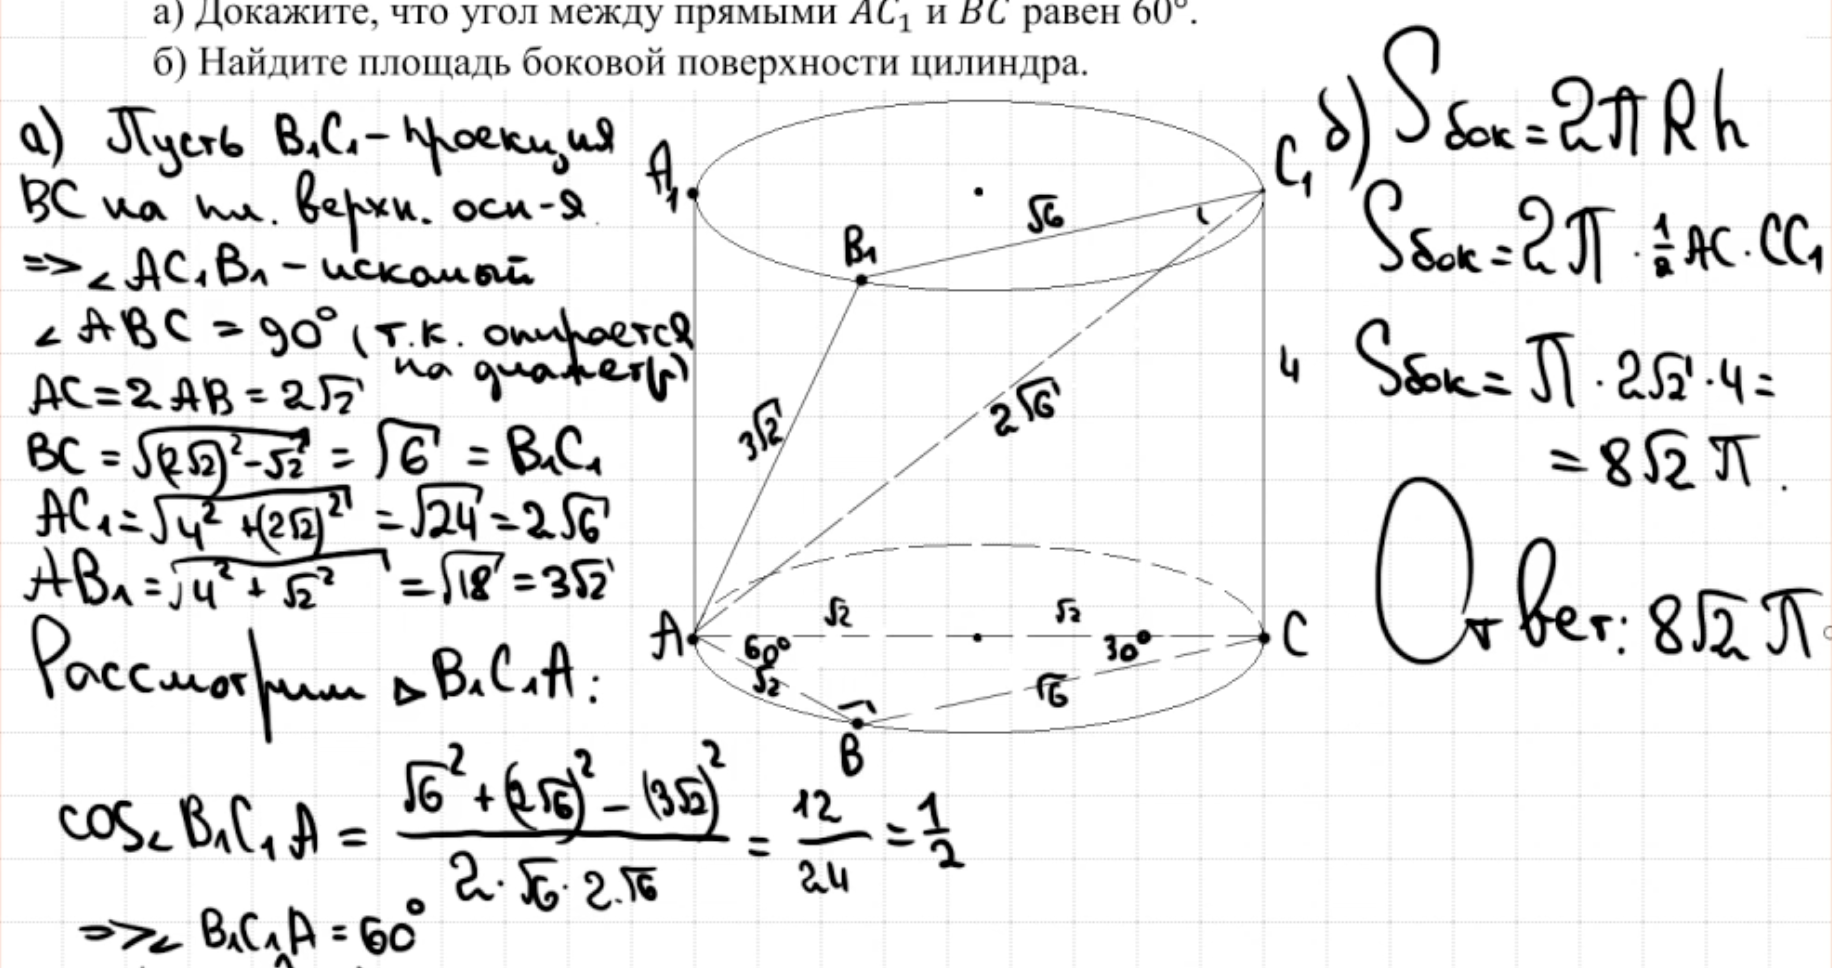 а) Докажите, что угол между прямыми AC₁ и BC равен 60°.
б) Найдите площадь боковой поверхности цилиндра.
а) Пусть B₁C₁ – проекция
BC на пл. верхн. осн-я
=> ∠AC₁B₁ – искомый
∠ABC = 90° (т.к. опирается
на диаметр)
AC = 2AB = 2√2
BC = √((2√2)² - √2²) = √6 = B₁C₁
AC₁ = √(4² + (2√2)²) = √24 = 2√6
AB₁ = √(4² + √2²) = √18 = 3√2
Рассмотрим △B₁C₁A:
cos∠B₁C₁A = (√6² + (2√6)² – (3√2)²) / (2·√6·2·√6) = 12/24 = 1/2
=> ∠B₁C₁A = 60°
A₁
C₁
B₁
√6
3√2
2√6
4
√2
√2
A
60°
30°
C
√2
√6
B
б) Sбок = 2πRh
Sбок = 2π · 1/2 AC · CC₁
Sбок = π · 2√2 · 4 =
= 8√2 π.
Ответ: 8√2 π.